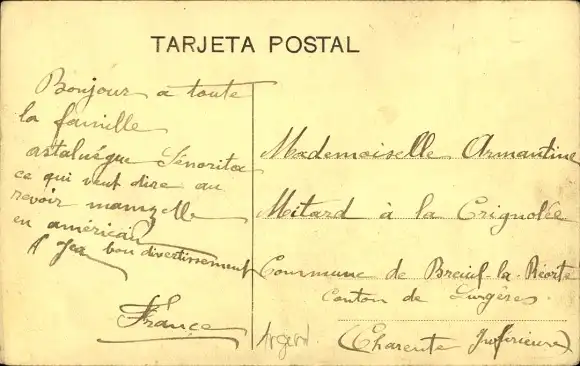 TARJETA POSTAL
Bonjour à toute
la famille
astaluégue Sénorita
ce qui veut dire au
revoir mamzelle
en américain
bon divertissement
France
Mademoiselle Armantine
Mitard à la Crignolée
Commune de Breuil-la-Réorte
Canton de Surgères.
(Charente Inférieure)